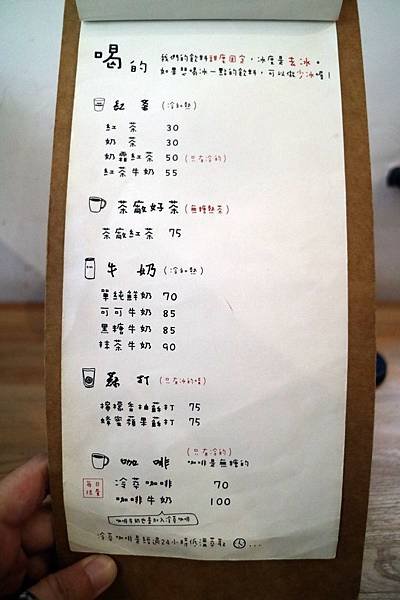 喝的
我們的飲料甜度固定，冰度是去冰。
如果想喝冰一點的飲料，可以做少冰喔！
紅茶（冷和熱）
紅茶 30
奶茶 30
奶霜紅茶 50（只有冷的）
紅茶牛奶 55
茶廠好茶（無糖熱茶）
茶廠紅茶 75
牛奶（冷和熱）
單純鮮奶 70
可可牛奶 85
黑糖牛奶 85
抹茶牛奶 90
蘇打（只有冰的喔）
檸檬香柚蘇打 75
蜂蜜蘋果蘇打 75
咖啡（只有冷的）咖啡是無糖的
每日限量
冷萃咖啡 70
咖啡牛奶 100
冷萃咖啡是經過24小時低溫萃取